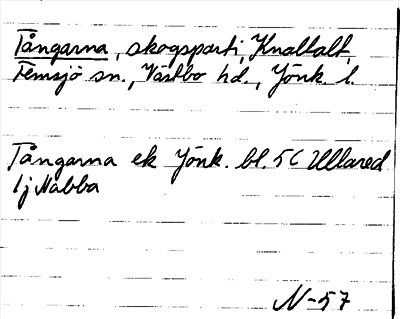 Tångarna, skogsparti, Knallalt,
Femsjö sn., Västbo hd., Jönk. l.
Tångarna ek Jönk. bl. 5C Ullared
1j Nabba
N-57